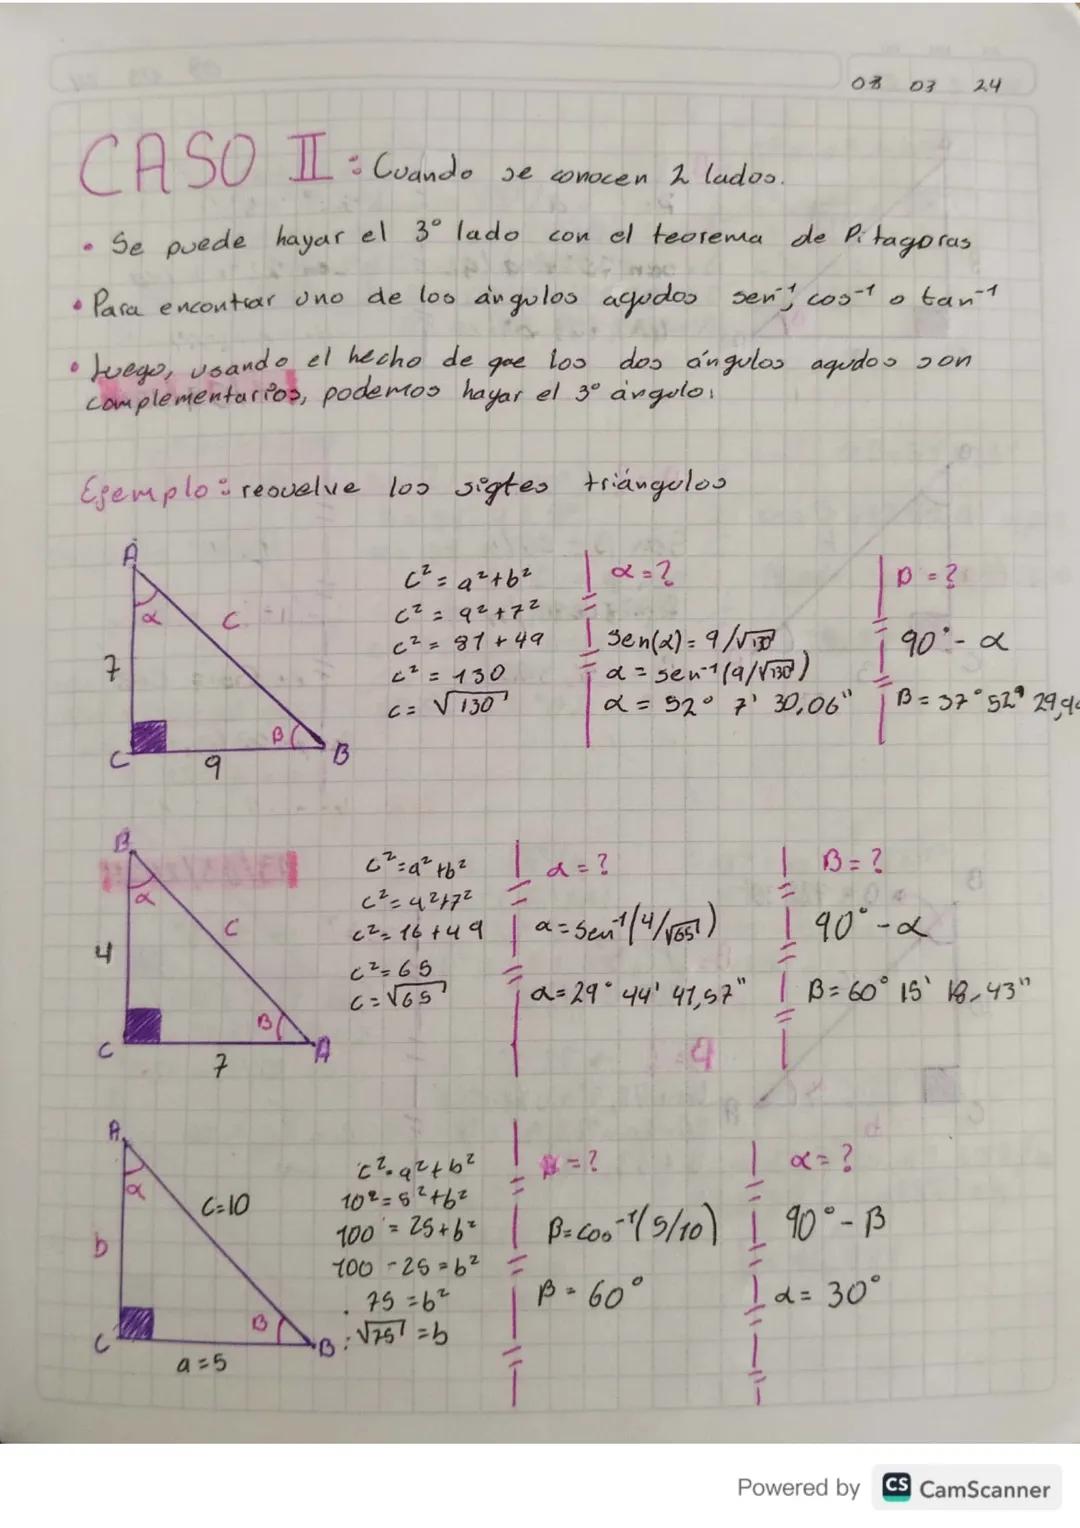 08 03 24
CASO II: Cuando se conocen 2 lados.
• Se puede hayar el 3° lado con el teorema de Pitagoras
• Para encontrar uno de los ángulos agudos sen⁻¹, cos⁻¹ o tan⁻¹
• Luego, usando el hecho de que los dos ángulos agudos son
complementarios, podemos hayar el 3° ángulo.
Ejemplo: resuelve los sigtes triángulos
A
α
C
7
C
9
B
B
c² = a²+b²
c² = 9²+7²
c² = 81+49
c² = 130
c = √130
α=?
sen(α)=9/√130
α=sen⁻¹(9/√130)
α= 52° 7' 30,06"
β=?
90°-α
B=37°52' 29,94
B
α
C
4
C
7
B
A
c²=a²+b²
c²=4²+7²
c²=16+49
c²=65
c=√65
α=?
α=sen⁻¹(4/√65)
α=29° 44' 41,57"
B=?
90°-α
B=60° 15' 18,43"
A
α
C=10
b
C
a=5
B
B
c²=a²+b²
10²=5²+b²
100=25+b²
100-25=b²
75=b²
√75=b
=?
β=cos⁻¹(5/10)
β=60°
α=?
90°-β
α=30°
Powered by CS CamScanner